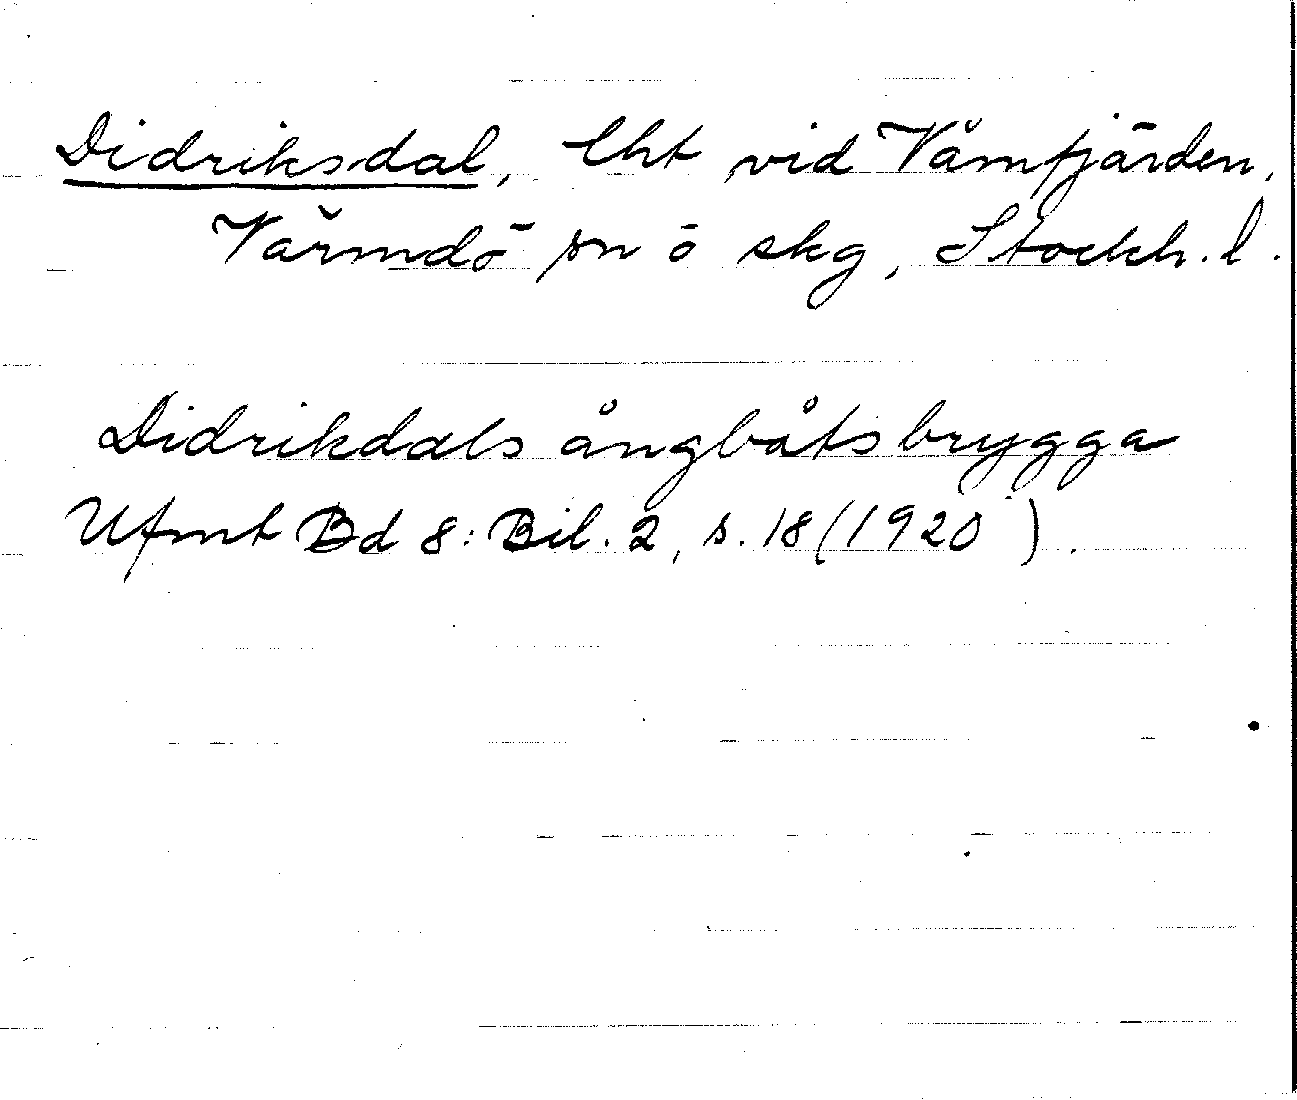 Didriksdal, lht vid Våmfjärden,
Värmdö sn o skg, Stockh. l.
Didrikdals ångbåtsbrygga
Ufmt Bd 8: Bil. 2, s. 18 (1920).